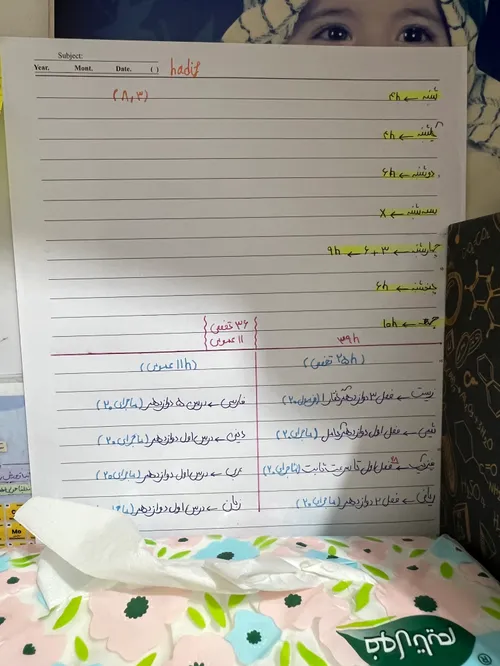 Subject:
Year. Mont. Date. ( ) hadis
(۸,۳)
شنبه ← ۴h
یکشنبه ← ۴h
دوشنبه ← ۶h
سه شنبه ← X
چهارشنبه ← ۳ + ۶ ← ۹h
پنجشنبه ← ۶h
جمعه ← ۱۰h
۳۹h
۳۶ تخصصی
۱۱ عمومی
(۲۵h تخصصی)
(۱۱h عمومی)
زیست ← فصل ۳ دوازدهم
شیمی ← فصل اول دوازدهم کامل (ماجرای ۲۰)
فصل اول تا سرعت ثابت (ماجرای ۲۰)
ریاضی ← فصل ۲ دوازدهم (ماجرای ۲۰)
فارسی ← درس ۵ دوازدهم (ماجرای ۲۰)
دینی ← درس اول دوازدهم (ماجرای ۲۰)
عربی ← درس اول دوازدهم (ماجرای ۲۰)
زبان ← درس اول دوازدهم
Mo